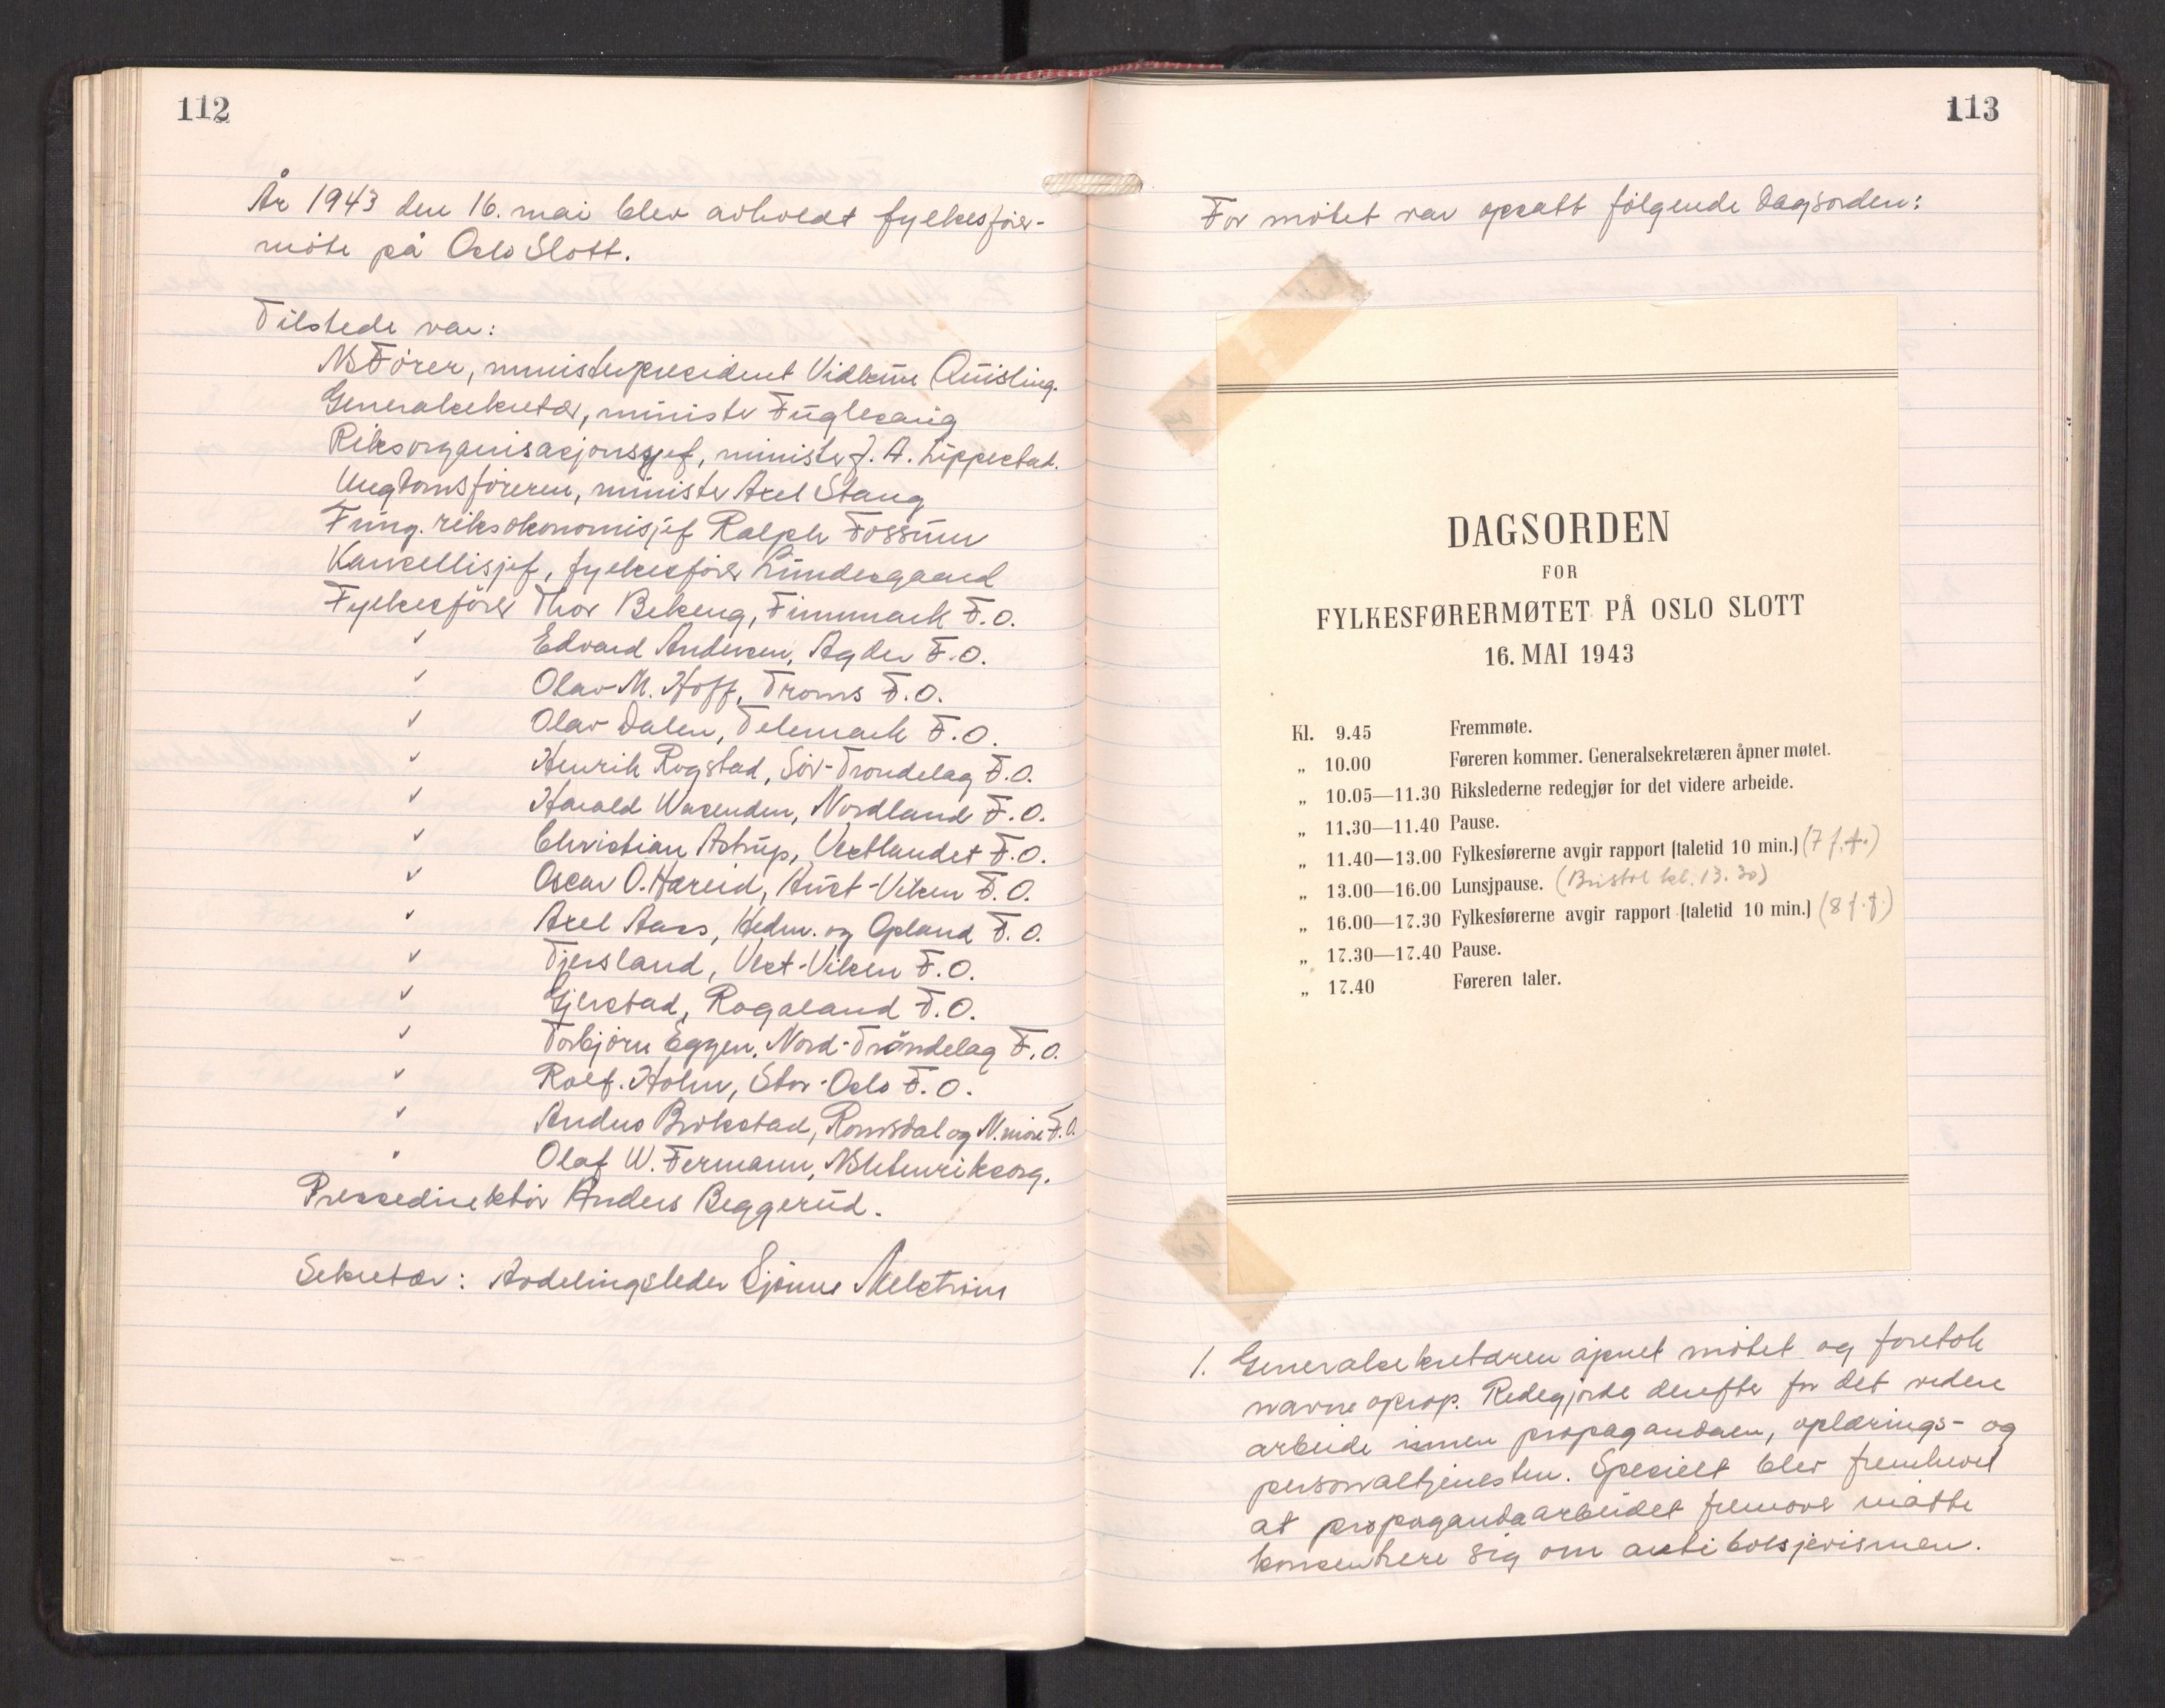 112
År 1943 den 16. mai blev avholdt fylkesfører-
møte på Oslo Slott.
Tilstede var:
NS Fører, ministerpresident Vidkun Quisling.
Generalsekretær, minister Fuglesang
Riksorganisasjonssjef, minister J. A. Lippestad.
Ungdomsføreren, minister Axel Stang
Fung. riksøkonomisjef Ralph Fossum
Kansellisjef, fylkesfører Lundesgaard
Fylkesfører Thor Bekeng, Finnmark F.O.
" Edvard Andersen, Agder F.O.
" Olav M. Hoff, Troms F.O.
" Olav Dalen, Telemark F.O.
" Henrik Rogstad, Sør-Trøndelag F.O.
" Harald Waxenden, Nordland F.O.
" Christian Astrup, Vestlandet F.O.
" Oscar O. Hareid, Aust-Viken F.O.
" Axel Aass, Hedm. og Opland F.O.
" Tjersland, Vest-Viken F.O.
" Gjerstad, Rogaland F.O.
" Torbjørn Eggen, Nord-Trøndelag F.O.
" Rolf. Holm, Stor-Oslo F.O.
" Anders Brokstad, Romsdal og N.møre F.O.
" Olaf W. Fermann, NS Utenriksorg.
Pressedirektør Anders Beggerud.
Sekretær: Avdelingsleder Sjønne Melstrøm
113
For møtet var opsatt følgende dagsorden:
DAGSORDEN
FOR
FYLKESFØRERMØTET PÅ OSLO SLOTT
16. MAI 1943
Kl. 9.45 Fremmøte.
„ 10.00 Føreren kommer. Generalsekretæren åpner møtet.
„ 10.05—11.30 Rikslederne redegjør for det videre arbeide.
„ 11.30—11.40 Pause.
„ 11.40—13.00 Fylkesførerne avgir rapport (taletid 10 min.) (7 f.f.)
„ 13.00—16.00 Lunsjpause. (Bristol kl. 13.30)
„ 16.00—17.30 Fylkesførerne avgir rapport (taletid 10 min.) (8 f.f.)
„ 17.30—17.40 Pause.
„ 17.40 Føreren taler.
1. Generalsekretæren åpnet møtet og foretok
navneoprop. Redegjorde derefter for det videre
arbeide innen propagandaen, oplærings- og
personaltjenesten. Spesielt blev fremhevet
at propagandaarbeidet fremover måtte
konsentrere sig om antibolsjevismen.